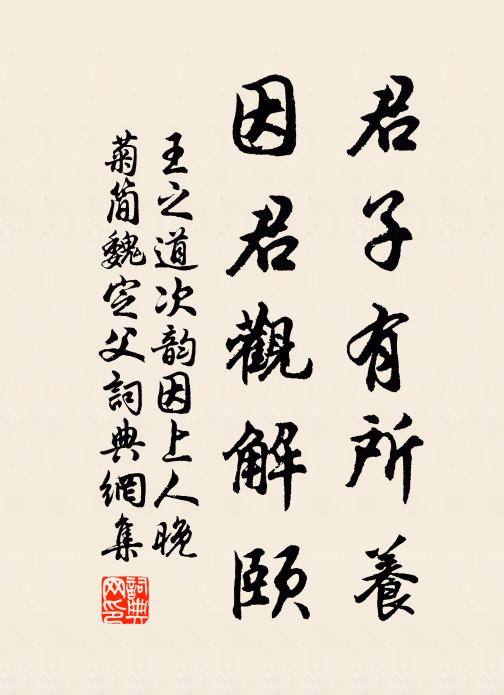 君子有所養
因君觀解頤
王之道次韵因上人晚
菊简魏定父詞典網集